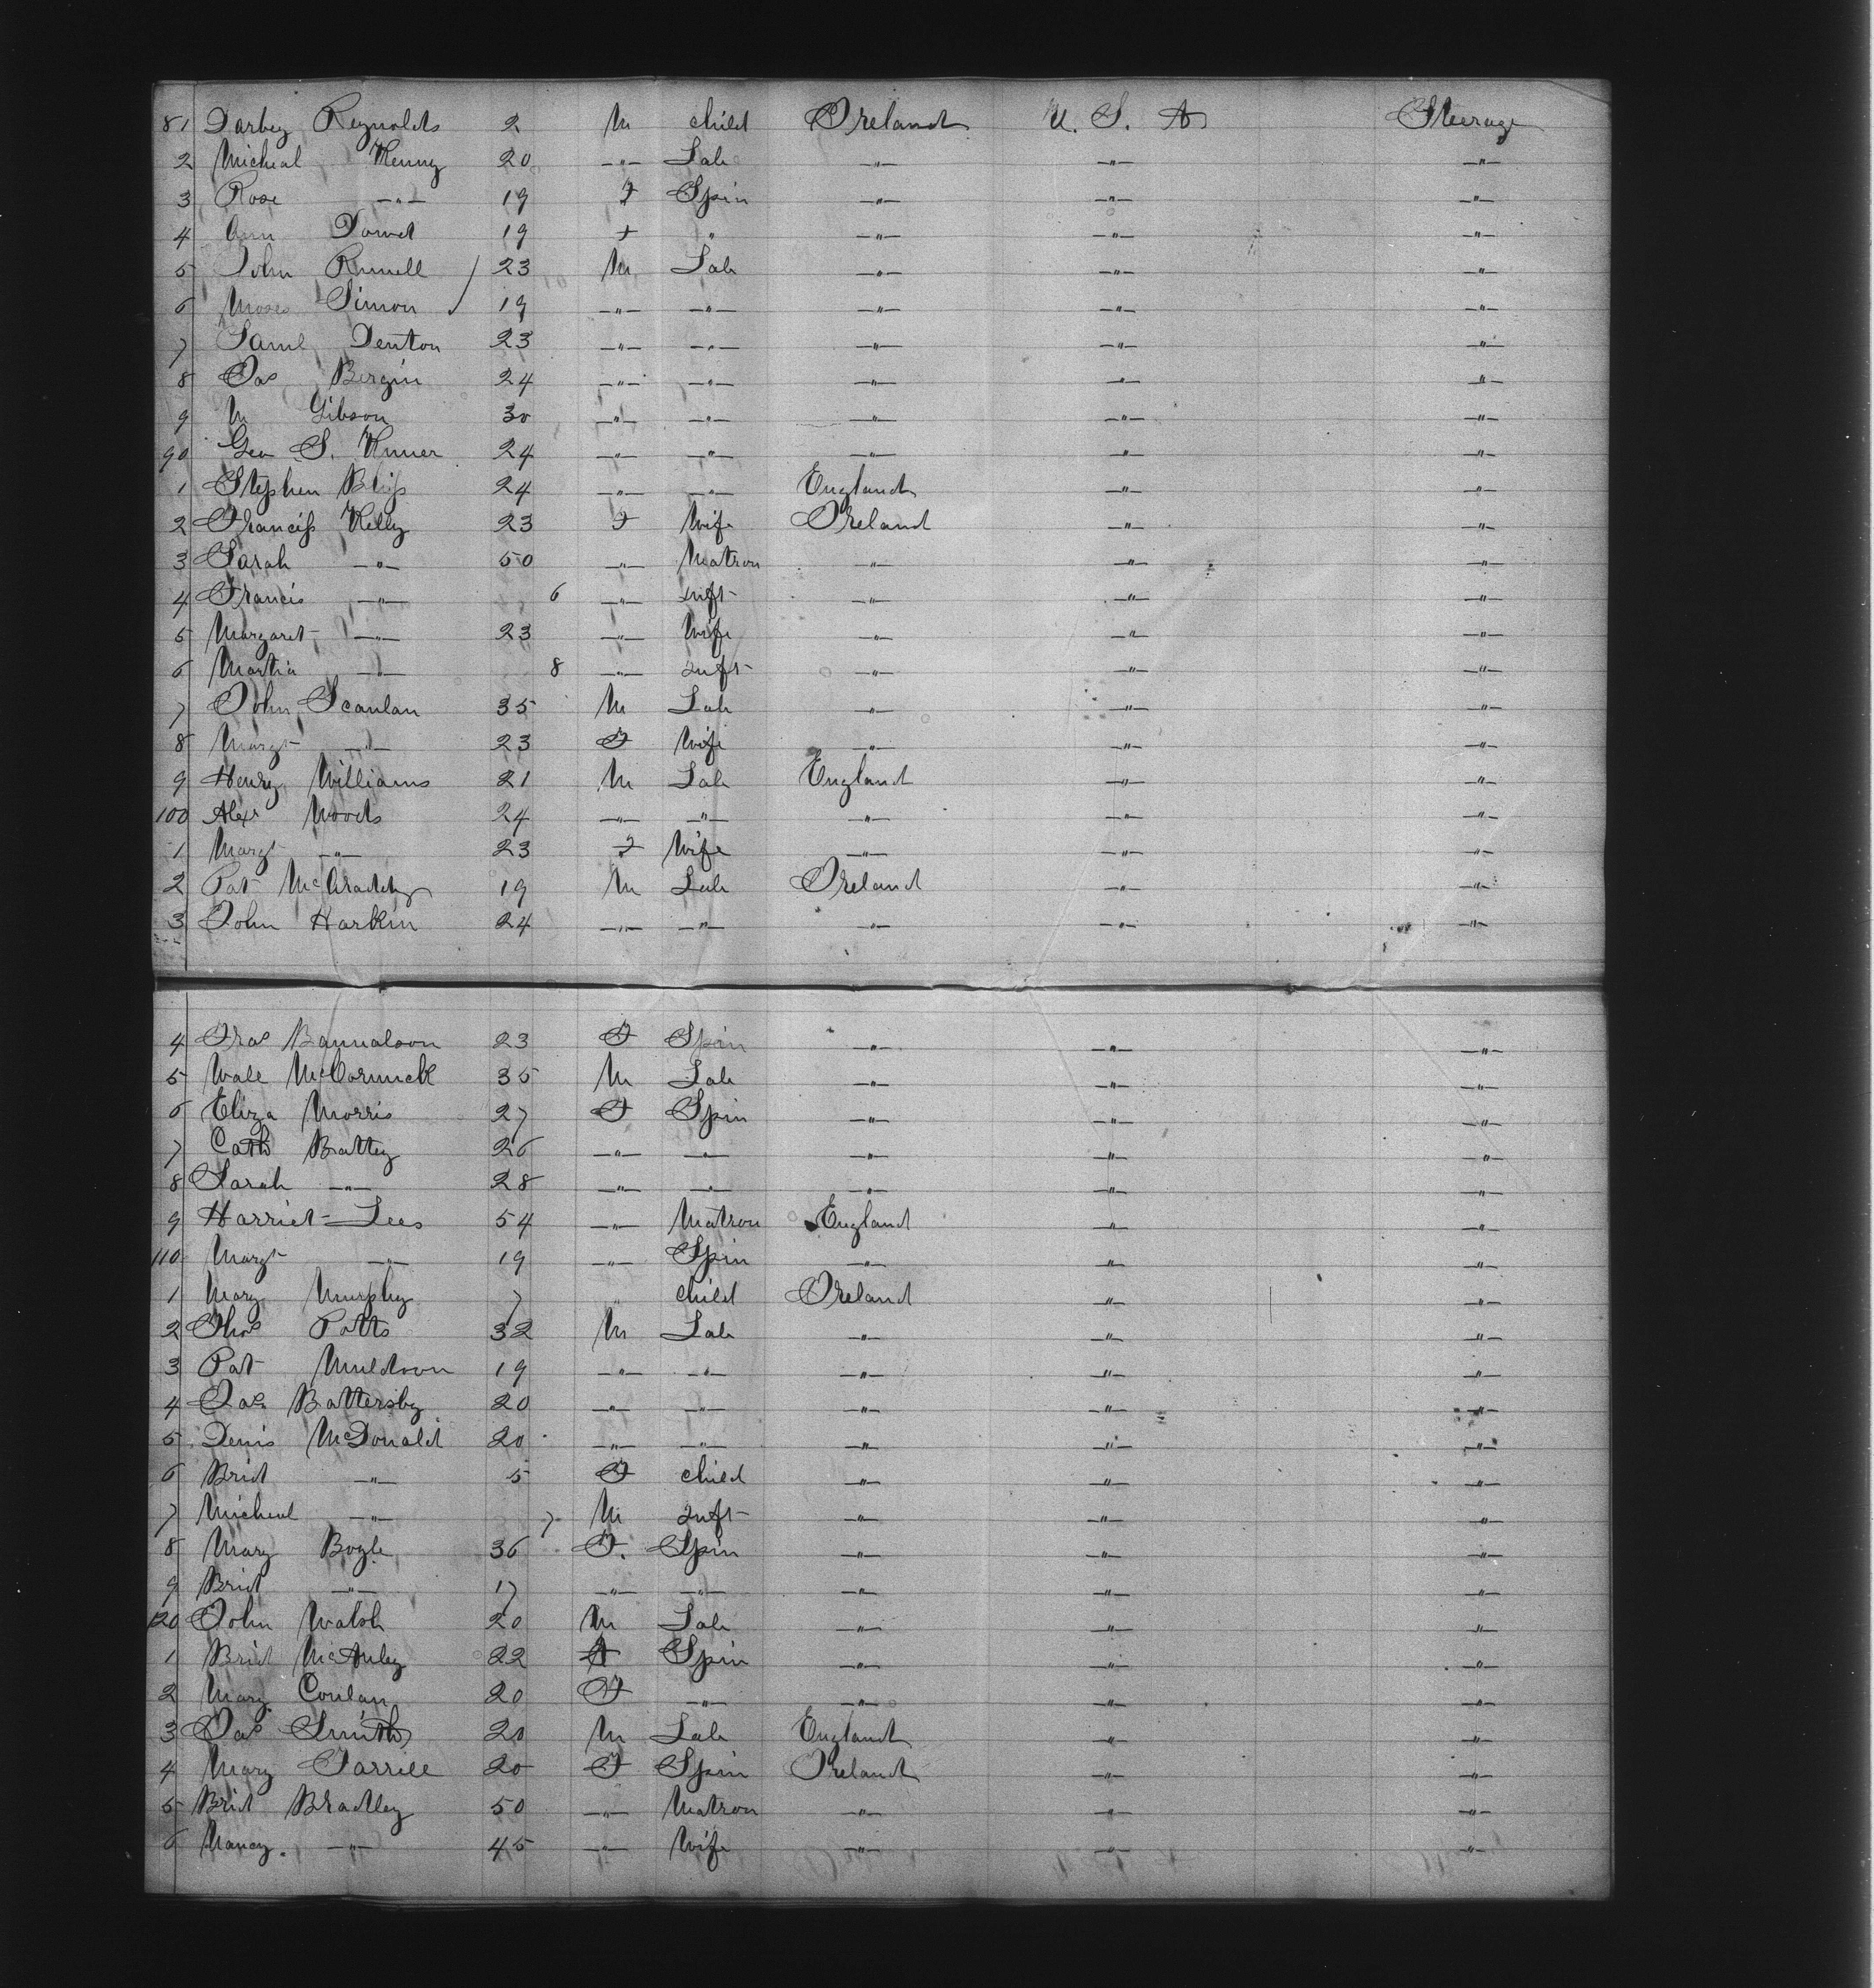 81 Darbey Reynolds 2 M child Ireland U. S. A Steerage
2 Micheal Kenny 20 —"— Lab —"— —"— —"—
3 Rose —"— 19 F Spin —"— —"— —"—
4 Ann 19 F " —"— —"— —"—
5 John 23 M Lab —"— —"— —"—
6 Moses Simon 19 —"— —"— —"— —"— —"—
7 Saml Denton 23 —"— —"— —"— —"— —"—
8 Jas Bergin 24 —"— —"— —"— —"— —"—
9 M Gibson 30 —"— —"— —"— —"— —"—
90 Geo S. 24 —"— —"— —"— —"— —"—
1 Stephen Bliss 24 —"— —"— England —"— —"—
2 Franciss Kelly 23 F Wife Ireland —"— —"—
3 Sarah —"— 50 —"— Matron —"— —"— —"—
4 Francis —"— 6 —"— Inft —"— —"— —"—
5 Margaret —"— 23 —"— Wife —"— —"— —"—
6 Martha —"— 8 —"— Inft —"— —"— —"—
7 John Scanlan 35 M Lab —"— —"— —"—
8 Margt —"— 23 F Wife —"— —"— —"—
9 Henry Williams 21 M Lab England —"— —"—
100 Alexr Woods 24 —"— —"— —"— —"— —"—
1 Margt —"— 23 F Wife —"— —"— —"—
2 Pat 19 M Lab Ireland —"— —"—
3 John Harkin 24 —"— —"— —"— —"— —"—
4 23 F Spin —"— —"— —"—
5 McCormick 35 M Lab —"— —"— —"—
6 Eliza Morris 27 F Spin —"— —"— —"—
7 Cath Battey 26 —"— —"— —"— —"— —"—
8 Sarah —"— 28 —"— —"— —"— —"— —"—
9 Harriet Lees 54 —"— Matron England —"— —"—
110 Margt —"— 19 —"— Spin —"— —"— —"—
1 Mary Murphy 7 " child Ireland —"— —"—
2 Thos Potts 32 M Lab —"— —"— —"—
3 Pat Muldoon 19 —"— —"— —"— —"— —"—
4 Jas Battersby 20 —"— —"— —"— —"— —"—
5 Denis McDonald 20 —"— —"— —"— —"— —"—
6 Brid —"— 5 F child —"— —"— —"—
7 Micheal —"— 7 M Inft —"— —"— —"—
8 Mary Bogle 36 F. Spin —"— —"— —"—
9 Brid —"— 17 —"— —"— —"— —"— —"—
120 John Walsh 20 M Lab —"— —"— —"—
1 Brid McAnley 22 F Spin —"— —"— —"—
2 Mary Conlan 20 F —"— —"— —"— —"—
3 Jas Smith 20 M Lab England —"— —"—
4 Mary Farrell 20 F Spin Ireland —"— —"—
5 Brid Bradley 50 —"— Matron —"— —"— —"—
6 Nancy. —"— 45 —"— Wife —"— —"— —"—